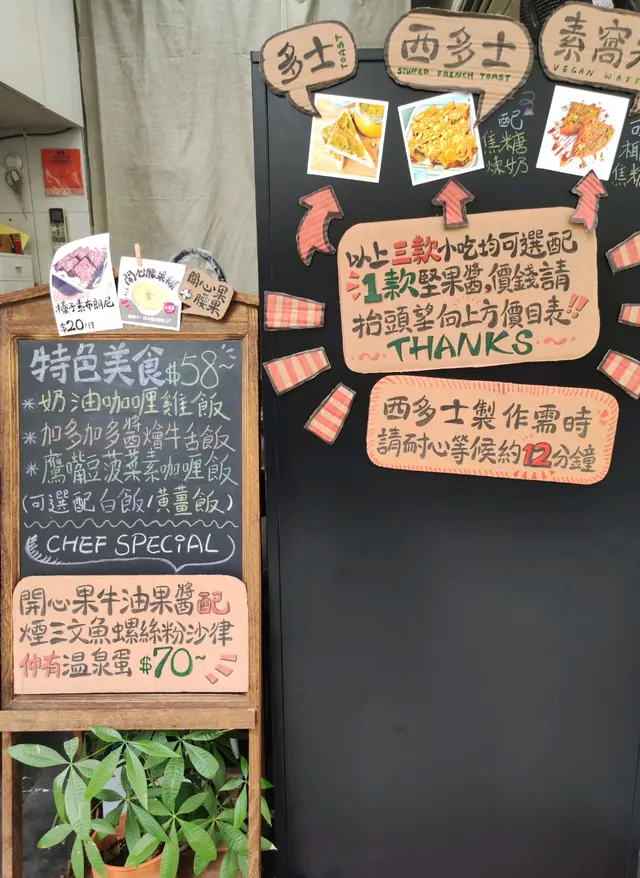 多士
TOAST
西多士
STUFFED FRENCH TOAST
素窩
VEGAN WAF
配
焦糖
煉奶
以上三款小吃均可選配
1款堅果醬,價錢請
抬頭望向上方價目表!!
THANKS
西多士製作需時
請耐心等候約12分鐘
榛子素布朗尼
$20/件
開心腰果糊
開心果
+腰果
特色美食$58~
*奶油咖哩雞飯
*加多加多醬燴牛舌飯
*鷹嘴豆菠菜素咖喱飯
(可選配白飯/黃薑飯)
CHEF SPECIAL
開心果牛油果醬配
煙三文魚螺絲粉沙律
仲有溫泉蛋 $70~